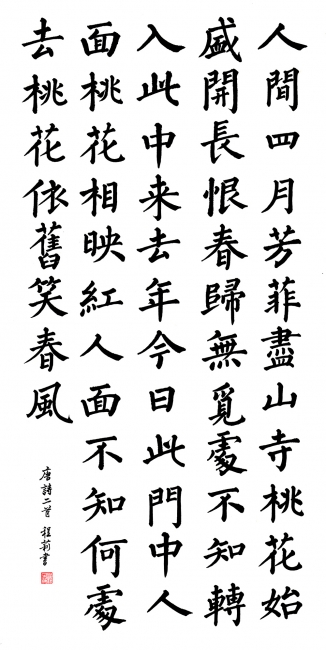 人間四月芳菲盡山寺桃花始
盛開長恨春歸無覓處不知轉
入此中来去年今日此門中人
面桃花相映紅人面不知何處
去桃花依舊笑春風
唐詩二首 程莉書